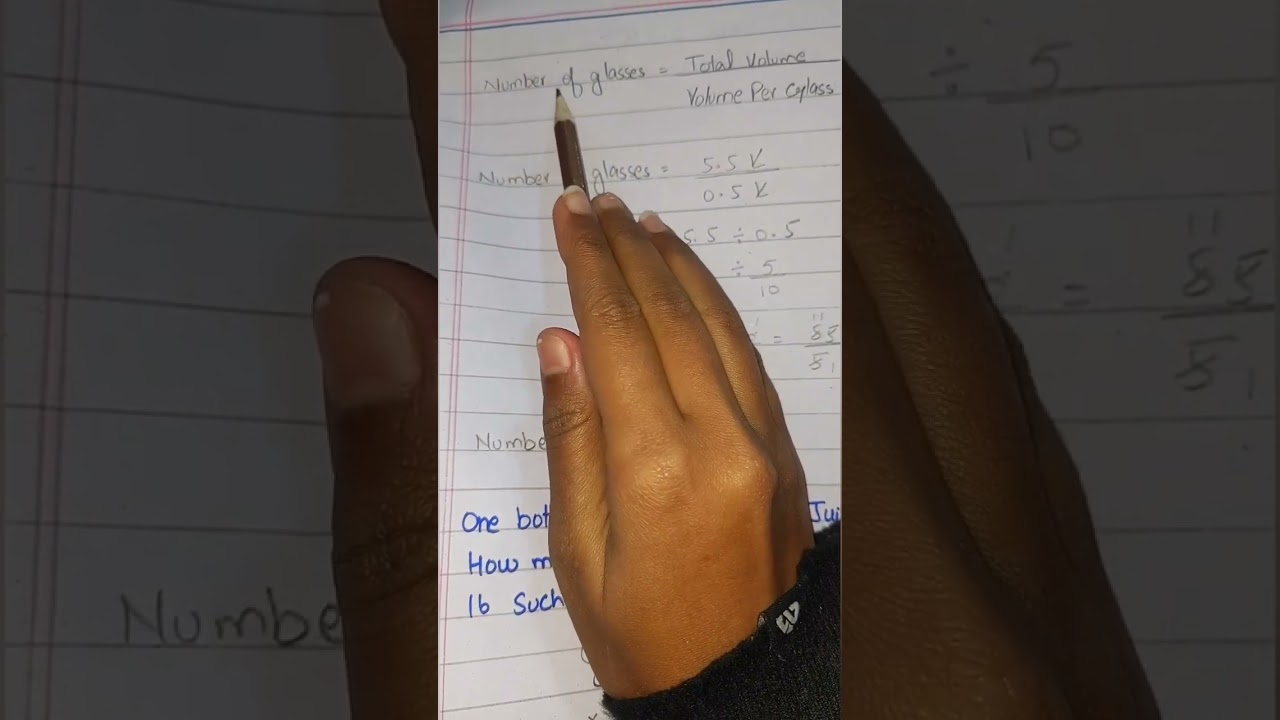 Number of glasses = Total Volume
Volume Per Glass
Number glasses = 5.5 L
0.5 L
5.5 ÷ 0.5
÷ 5
10
1 = 11
55
5 1
Numbe
One bot Jui
How m
16 Such